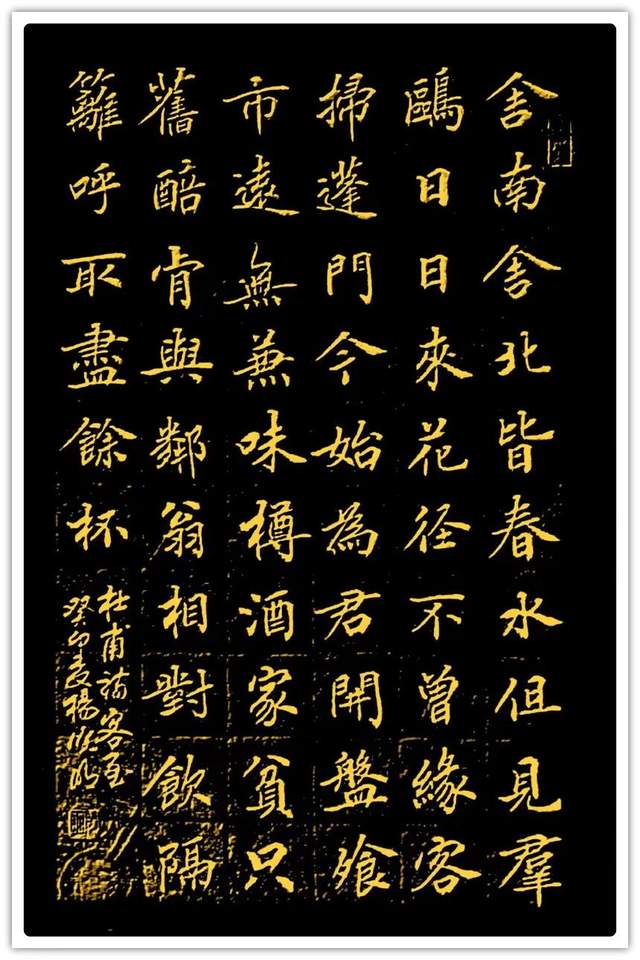 舍南舍北皆春水但見羣
鷗日日來花径不曾緣客
掃蓬門今始為君開盤飱
市遠無兼味樽酒家貧只
舊醅肯與鄰翁相對飲隔
籬呼取盡餘杯
杜甫詩客至
癸卯夏楊